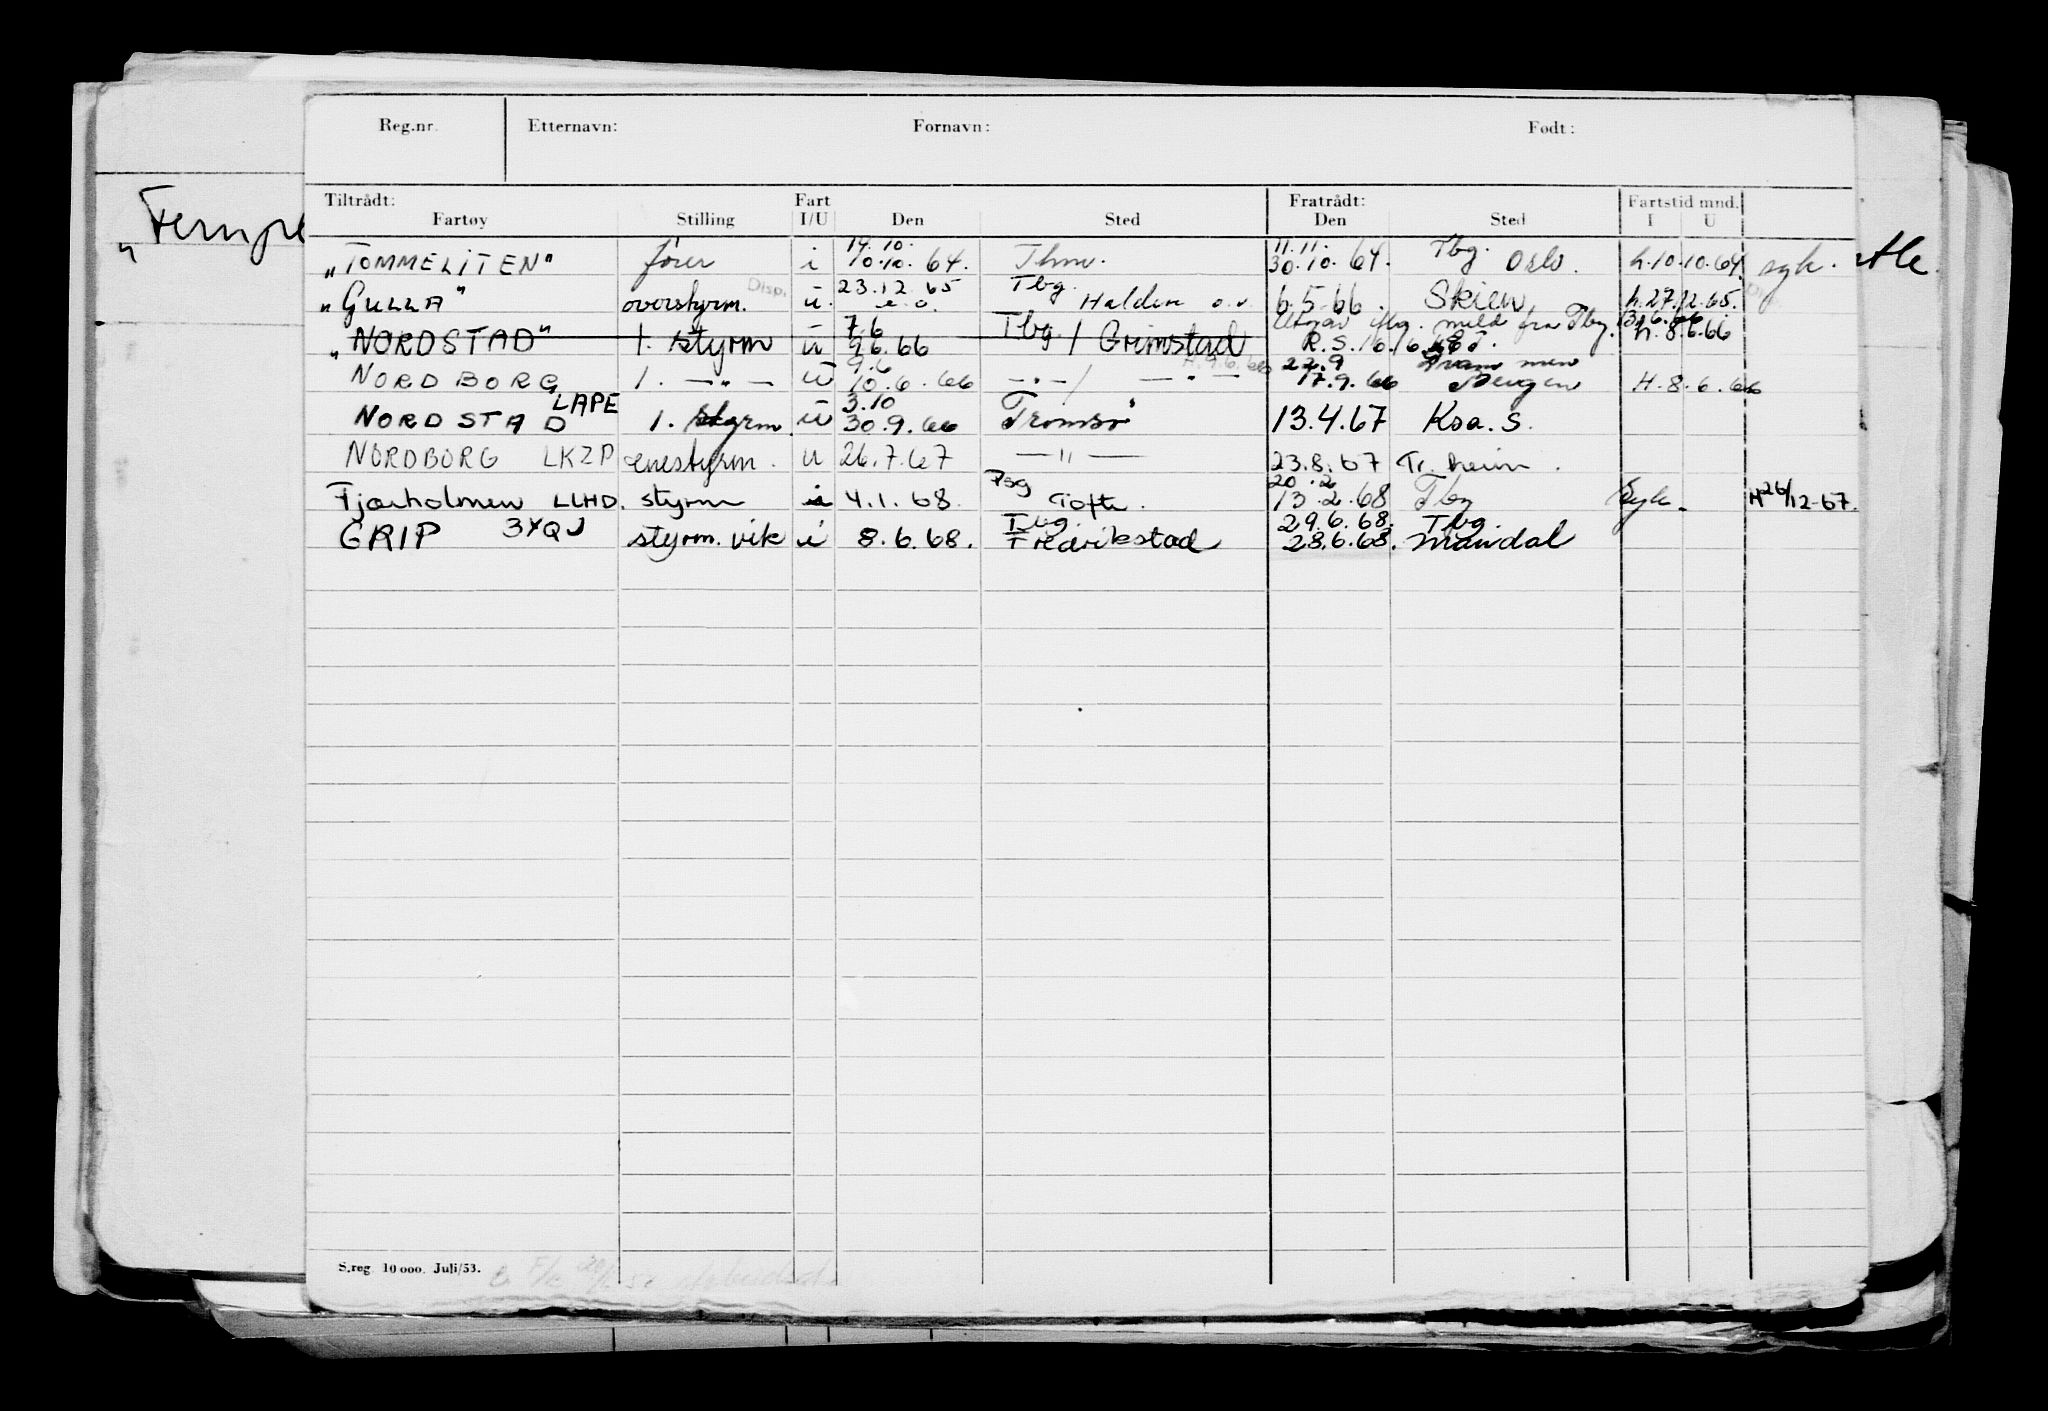 Reg.nr. Etternavn: Fornavn: Født:
Tiltrådt: Fart Fratrådt: Fartstid mnd.
Fartøy Stilling I/U Den Sted Den Sted I U
14.10. 11.11. Tbg.
"TOMMELITEN" fører i 10.10.64. Thm. 30.10.64. Oslo. h.10.10.64. syk.
Disp. 23.12.65 Tbg.
"GULLA" overstyrm. u. Halden 6.5.66. Skien h.27.12.65.
7.6 Tbg. meld fra Tbg.
"NORDSTAD" 1. styrm u 9.6.66 / Grimstad R.S. h.8.6.66
9.6 H.9.6.66 22.9
NORDBORG 1. —"— u 10.6.66 —"— / —"— 17.9.66 H.8.6.66
LAPE 3.10
NORDSTAD 1. styrm. u 30.9.66 Tromsø 13.4.67 Ksa.S.
NORDBORG LKZP enestyrm. u 26.7.67 —"— 23.8.67 Tr.heim.
Tbg 20.2
Fjærholmen LLHD. styrm i 4.1.68. Tofte. 13.2.68 Tbg Syk. H 26/12-67.
Tbg. 29.6.68. Tbg.
GRIP 3YQJ styrm. vik i 8.6.68. Fredrikstad 28.6.68. Mandal
S.reg. 10 000. Juli/53.